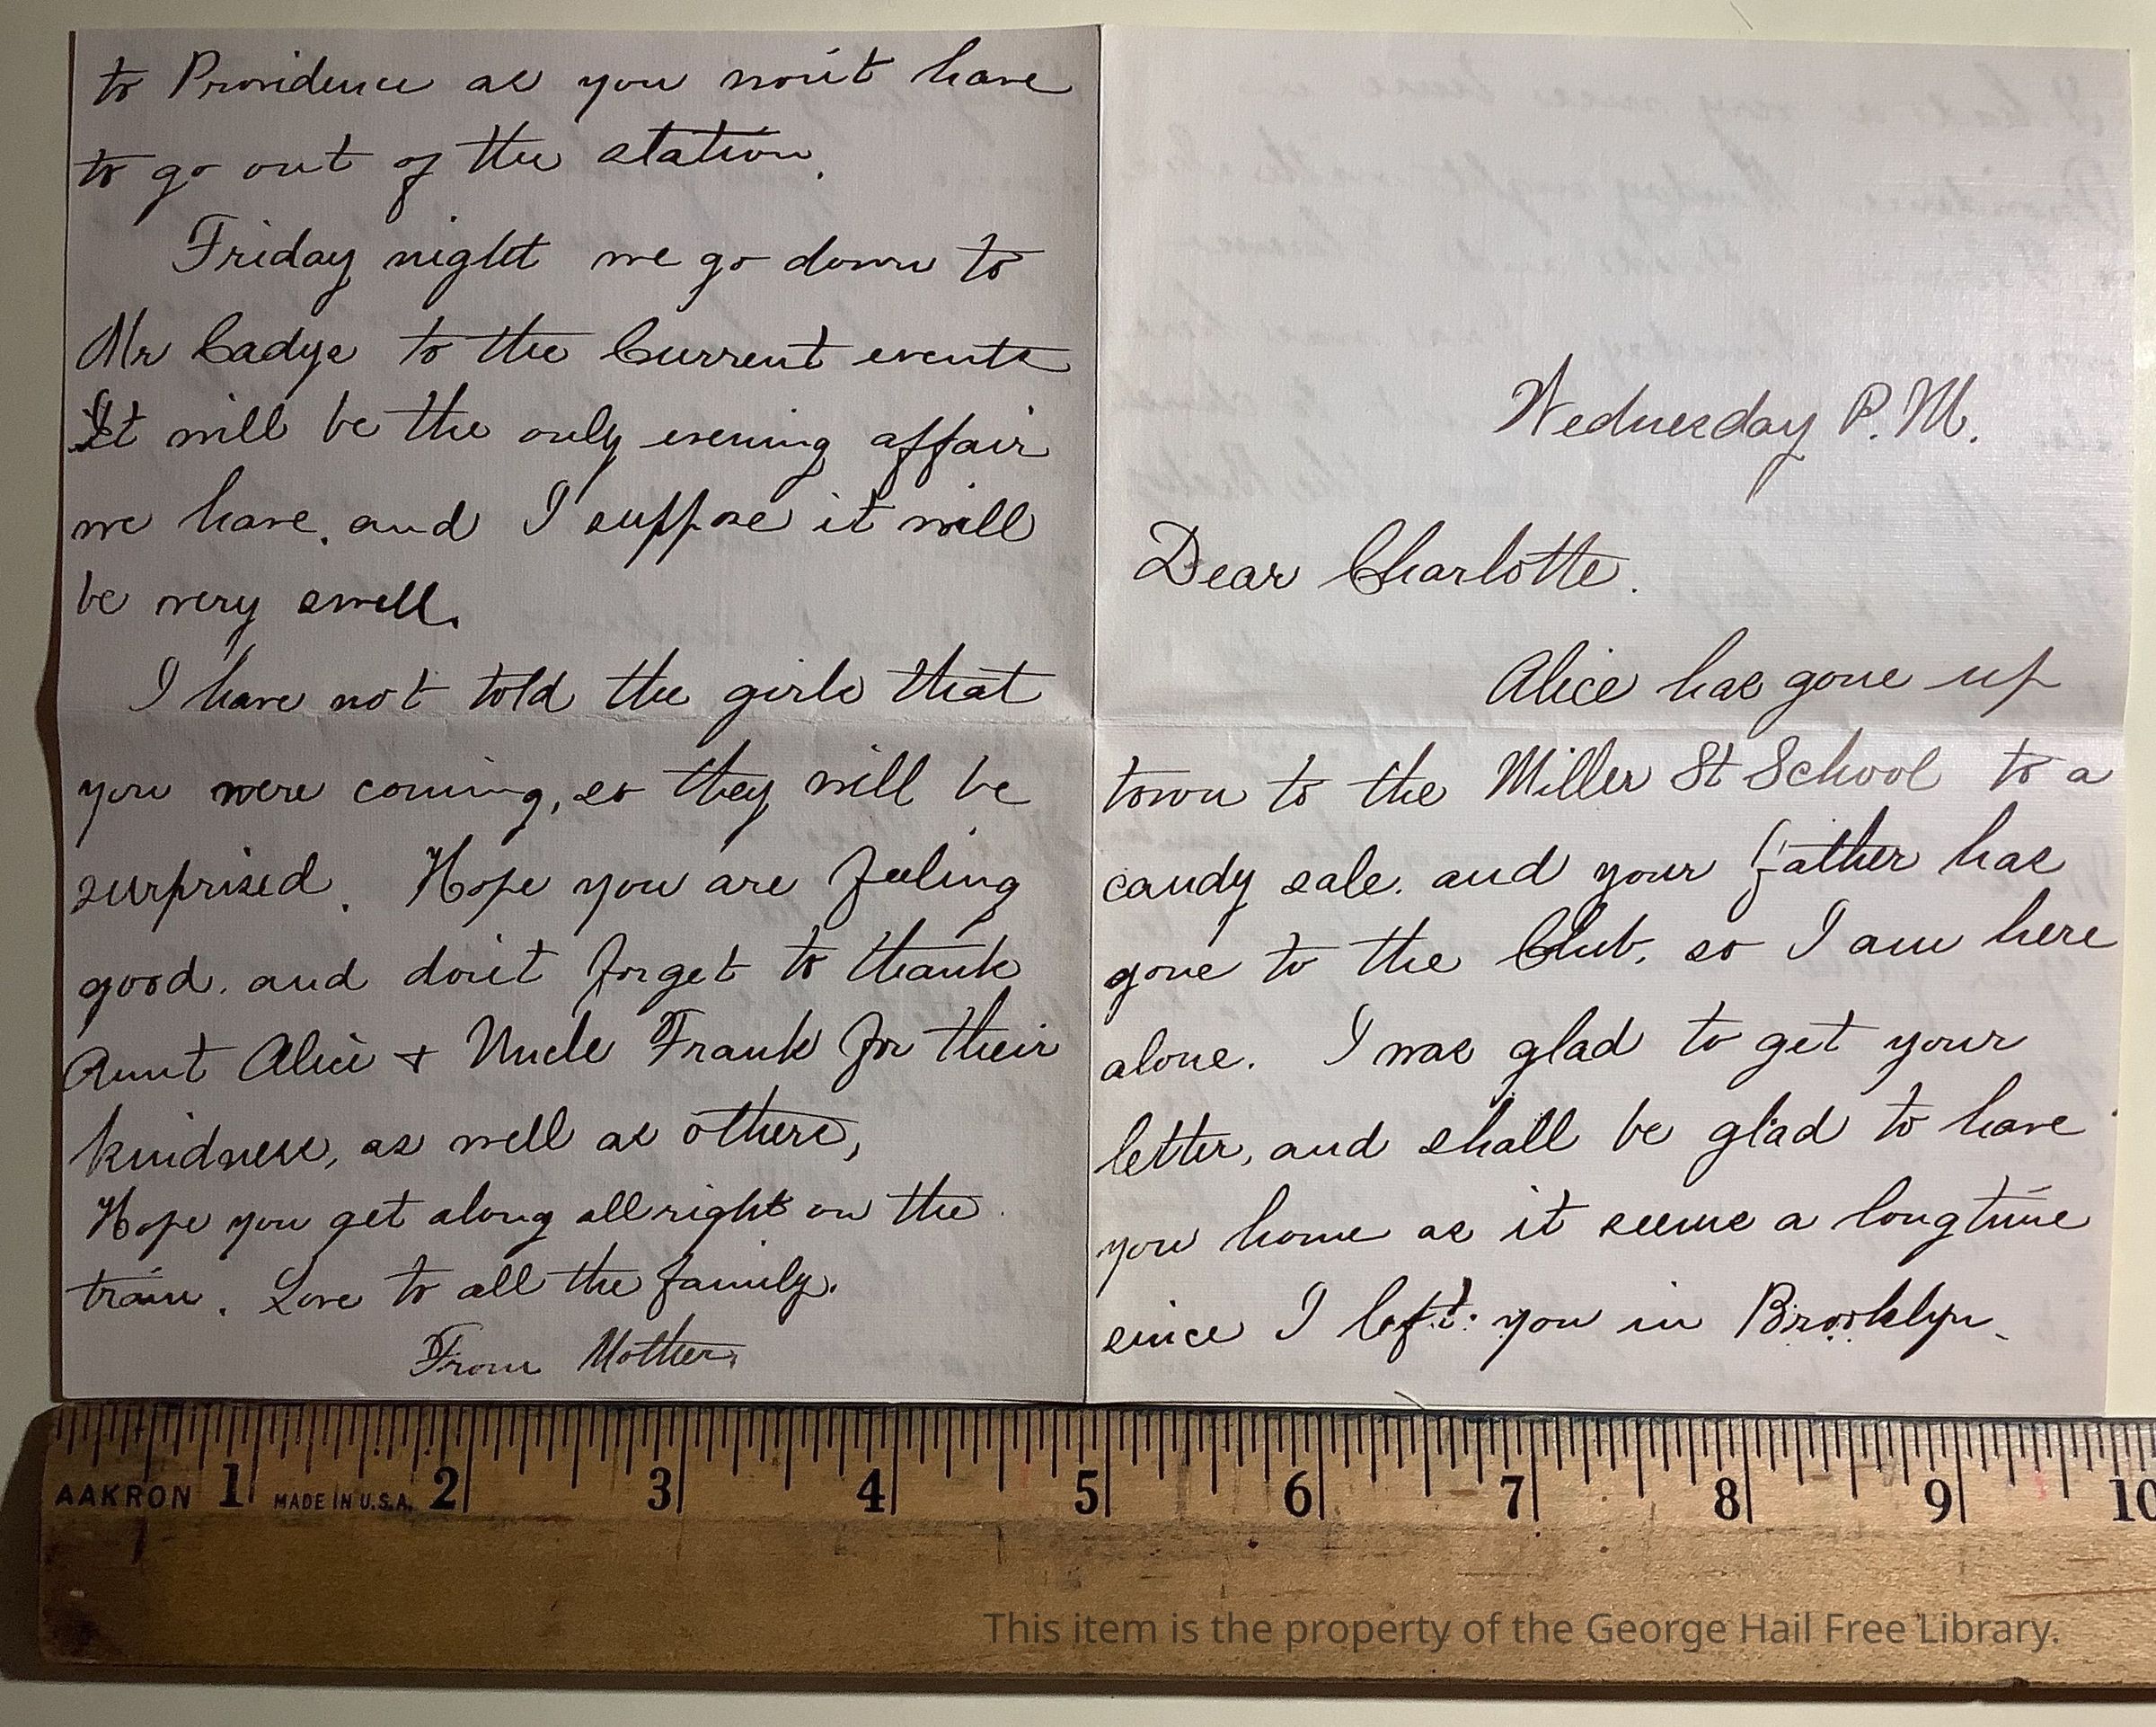 Wednesday P.M.
Dear Charlotte.
Alice has gone up
town to the Miller St School to a
candy sale. and your father has
gone to the Club. so I am here
alone. I was glad to get your
letter, and shall be glad to have
you home as it seems a longtime
since I left you in Brooklyn.
to Providence as you won't have
to go out of the station.
Friday night we go down to
Mr Cadys to the Current events
It will be the only evening affair
we have. and I suppose it will
be very swell.
I have not told the girls that
you were coming, so they will be
surprised. Hope you are feeling
good. and don't forget to thank
Aunt Alice + Uncle Frank for their
kindness, as well as others,
Hope you get along allright on the
train. Love to all the family.
From Mother.
AAKRON 1 MADE IN U.S.A. 2 3 4 5 6 7 8 9 10
This item is the property of the George Hail Free Library.